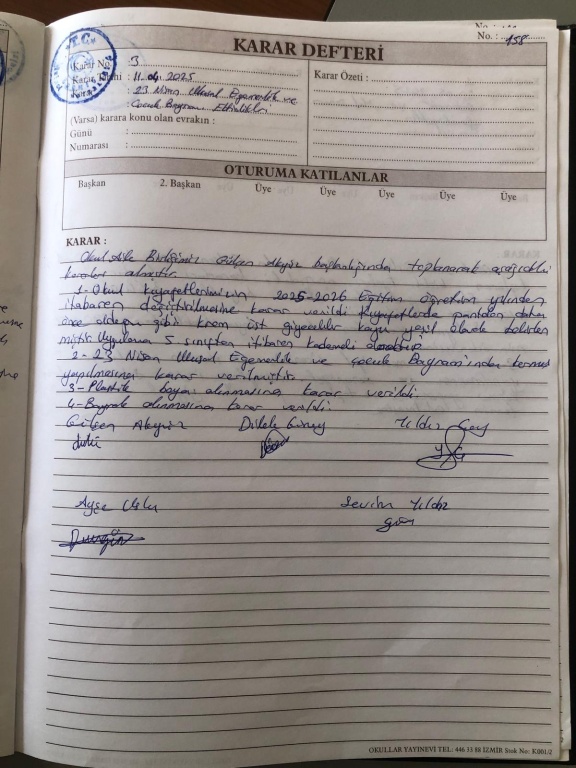 No. : 158
KARAR DEFTERİ
T.C.
Karar No : 3
Karar Tarihi : 11.04.2025
23 Nisan Ulusal Egemenlik ve
Çocuk Bayramı Etkinlikleri
(Varsa) karara konu olan evrakın :
Günü :
Numarası :
Karar Özeti :
OTURUMA KATILANLAR
Başkan 2. Başkan Üye Üye Üye Üye Üye
KARAR :
Okul Aile Birliğimiz Gülşen Akgün başkanlığında toplanarak aşağıdaki
kararları almıştır.
1-Okul kıyafetlerimizin 2025-2026 Eğitim öğretim yılından
itabaren değiştirilmesine karar verildi Kıyafetlerde pantolon daha
önce olduğu gibi krem üst giyecekler koyu yeşil olarak belirlen
miştir. Uygulama 5 sınıftan itibaren kademeli olacaktır
2- 23 Nisan Ulusal Egemenlik ve çocuk Bayramı'ndan kermes
yapılmasına karar verilmiştir.
3- Plastik boya alınmasına karar verildi.
4- Bayrak alınmasına karar verildi.
Gülşen Akgün Dilek Güney Yıldız
Ayşe Uslu Sevim Yıldız
OKULLAR YAYINEVİ TEL: 446 33 88 İZMİR Stok No: K001/2